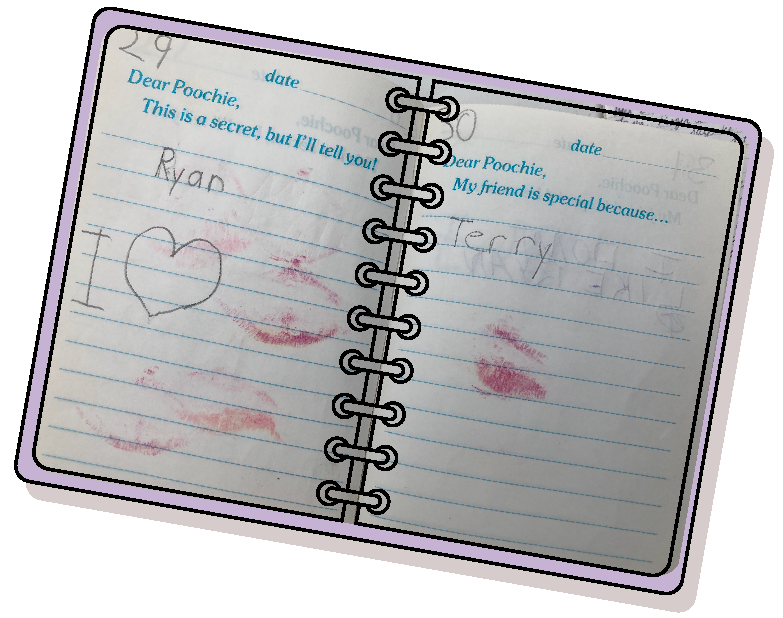 29
date
Dear Poochie,
This is a secret, but I'll tell you!
Ryan
I
30
date
Dear Poochie,
My friend is special because...
Terry